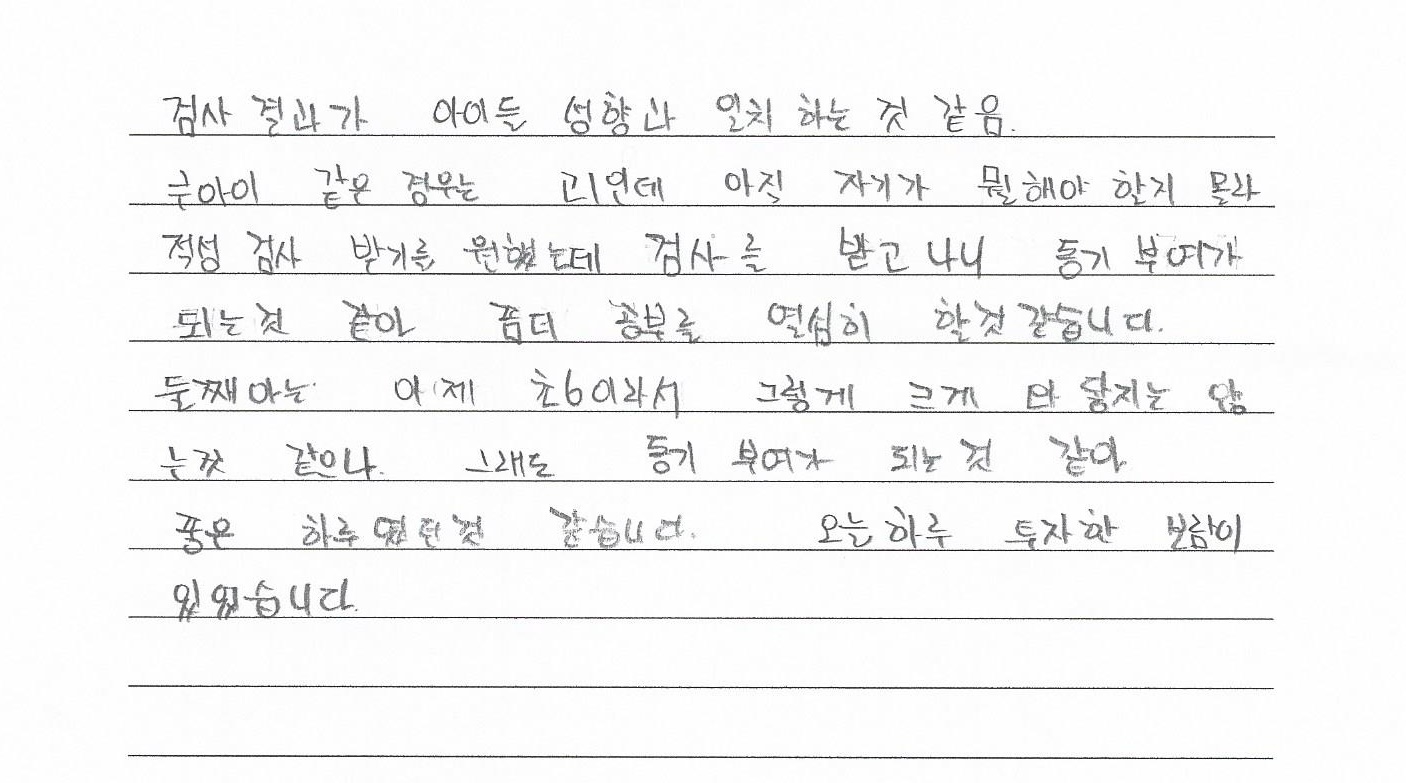 검사 결과가 아이들 성향과 일치 하는 것 같음.
큰아이 같은 경우는 고1인데 아직 자기가 뭘해야 할지 몰라
적성 검사 받기를 원했는데 검사를 받고 나니 동기 부여가
되는것 같아 좀더 공부를 열심히 할것 같습니다.
둘째아는 이제 초6이라서 그렇게 크게 와 닿지는 않
는것 같으나. 그래도 동기 부여가 되는 것 같아
좋은 하루였던것 같습니다. 오늘하루 투자한 보람이
있었습니다.